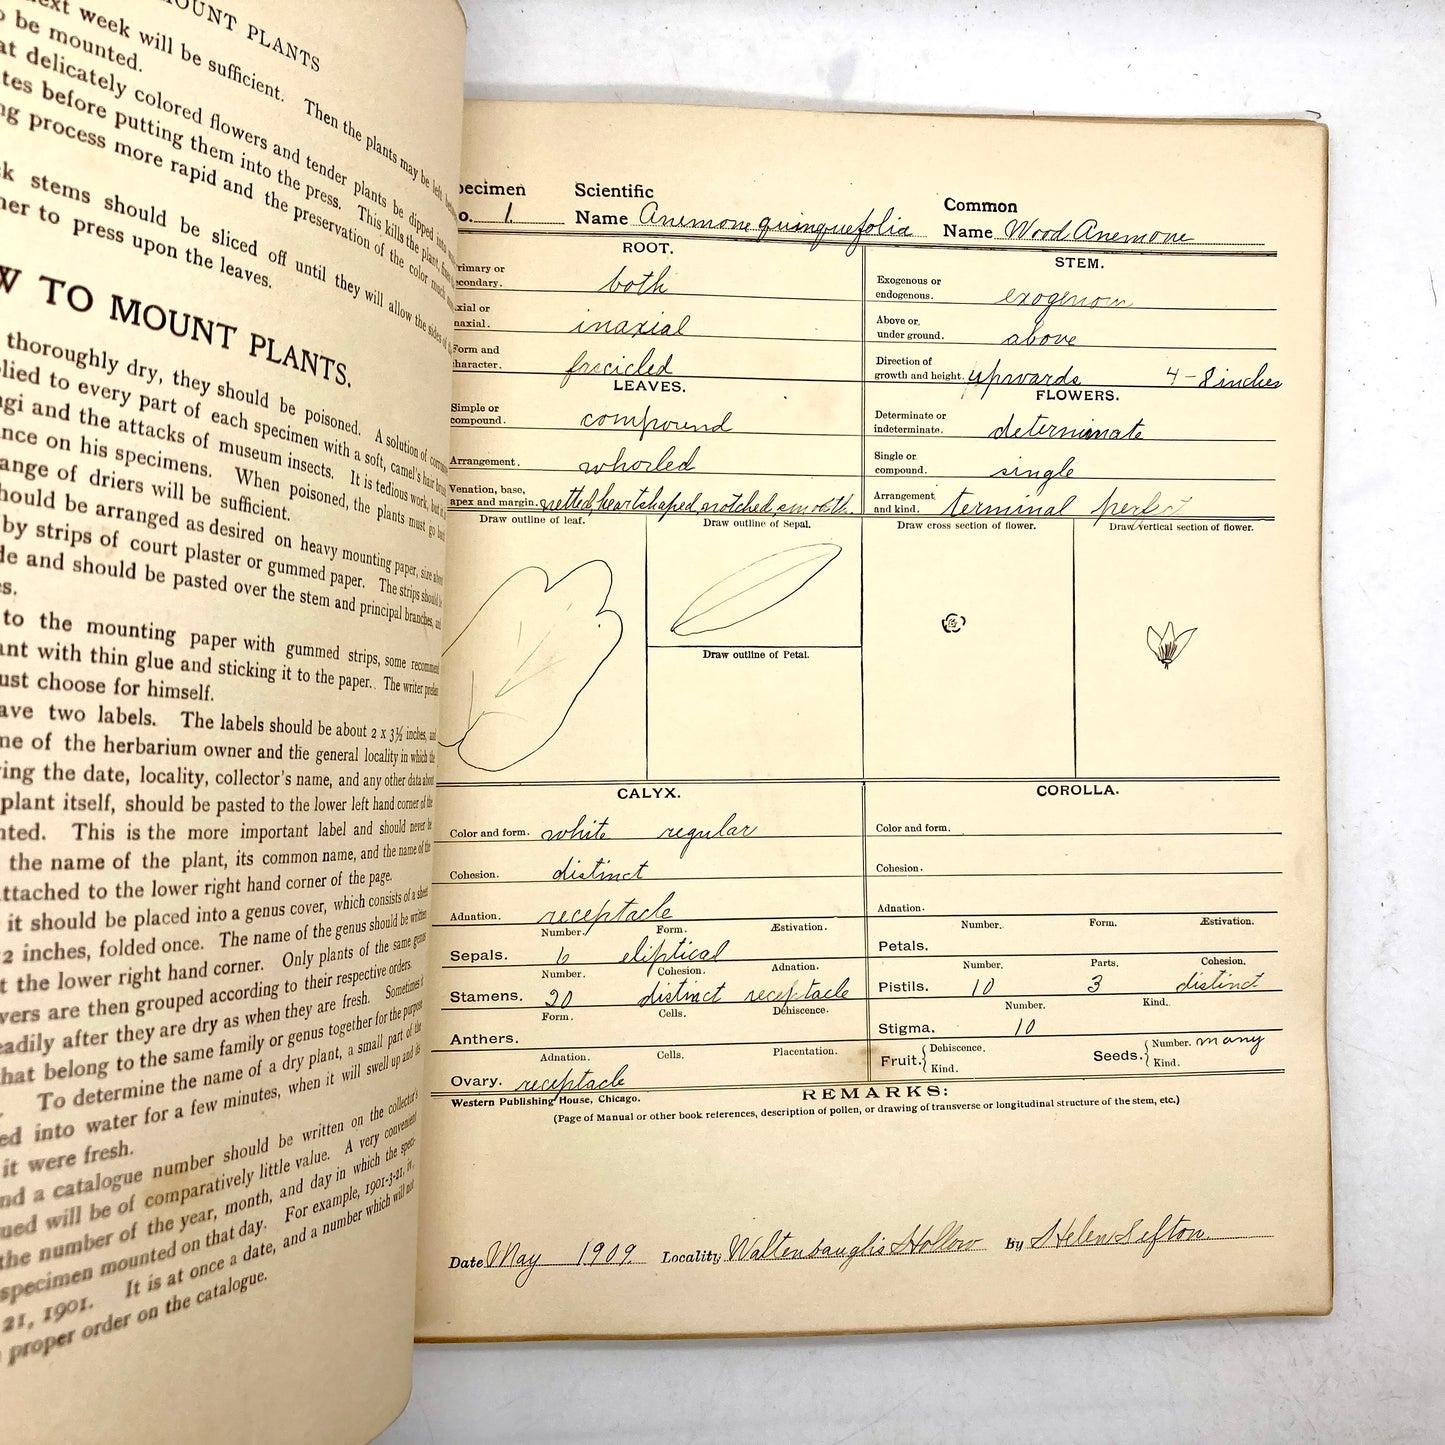 MOUNT PLANTS
next week will be sufficient. Then the plants may be left
be mounted.
at delicately colored flowers and tender plants be dipped into
tes before putting them into the press. This kills the plant,
ng process more rapid and the preservation of the color much
k stems should be sliced off until they will allow the sides of
ner to press upon the leaves.
W TO MOUNT PLANTS.
thoroughly dry, they should be poisoned. A solution of
lied to every part of each specimen with a soft, camel's hair brush
ngi and the attacks of museum insects. It is tedious work, but
ance on his specimens. When poisoned, the plants must go
ange of driers will be sufficient.
hould be arranged as desired on heavy mounting paper, size about
by strips of court plaster or gummed paper. The strips should be
de and should be pasted over the stem and principal branches, and
es.
to the mounting paper with gummed strips, some recommend
ant with thin glue and sticking it to the paper. The writer prefers
ust choose for himself.
ave two labels. The labels should be about 2 x 3½ inches, and
me of the herbarium owner and the general locality in which the
ing the date, locality, collector's name, and any other data about
plant itself, should be pasted to the lower left hand corner of the
nted. This is the more important label and should never be
the name of the plant, its common name, and the name of the
ttached to the lower right hand corner of the page.
it should be placed into a genus cover, which consists of a sheet
2 inches, folded once. The name of the genus should be written
t the lower right hand corner. Only plants of the same genus
vers are then grouped according to their respective orders.
eadily after they are dry as when they are fresh. Sometimes
hat belong to the same family or genus together for the purpose
To determine the name of a dry plant, a small part of the
ed into water for a few minutes, when it will swell up and
it were fresh.
nd a catalogue number should be written on the collector's
ued will be of comparatively little value. A very convenient
the number of the year, month, and day in which the spec-
specimen mounted on that day. For example, 1901-3-21, iv,
21, 1901. It is at once a date, and a number which will not
proper order on the catalogue.
pecimen Scientific Common
o. 1. Name Anemone quinquefolia Name Wood Anemone
ROOT. STEM.
rimary or
econdary. both
Exogenous or
endogenous. exogenous
xial or
naxial. inaxial
Above or
under ground. above
Form and
haracter. fascicled
Direction of
growth and height. upwards 4-8 inches
LEAVES. FLOWERS.
Simple or
compound. compound
Determinate or
indeterminate. determinate
Arrangement. whorled
Single or
compound. single
Venation, base,
apex and margin. netted, heartshaped, notched, smooth.
Arrangement
and kind. terminal perfect
Draw outline of leaf. Draw outline of Sepal. Draw cross section of flower. Draw vertical section of flower.
Draw outline of Petal.
CALYX. COROLLA.
Color and form. white regular Color and form.
Cohesion. distinct Cohesion.
Adnation. receptacle Adnation.
Number. Form. Æstivation. Number. Form. Æstivation.
Sepals. 6 eliptical Petals.
Number. Cohesion. Adnation. Number. Parts. Cohesion.
Stamens. 20 distinct receptacle Pistils. 10 3 distinct
Form. Cells. Dehiscence. Number. Kind.
Anthers. Stigma. 10
Adnation. Cells. Placentation.
Ovary. receptacle
Fruit. Dehiscence. Kind. Seeds. Number. many Kind.
Western Publishing House, Chicago. REMARKS:
(Page of Manual or other book references, description of pollen, or drawing of transverse or longitudinal structure of the stem, etc.)
Date May 1909. Locality Waltenbaughs Hollow by Helen Sefton.